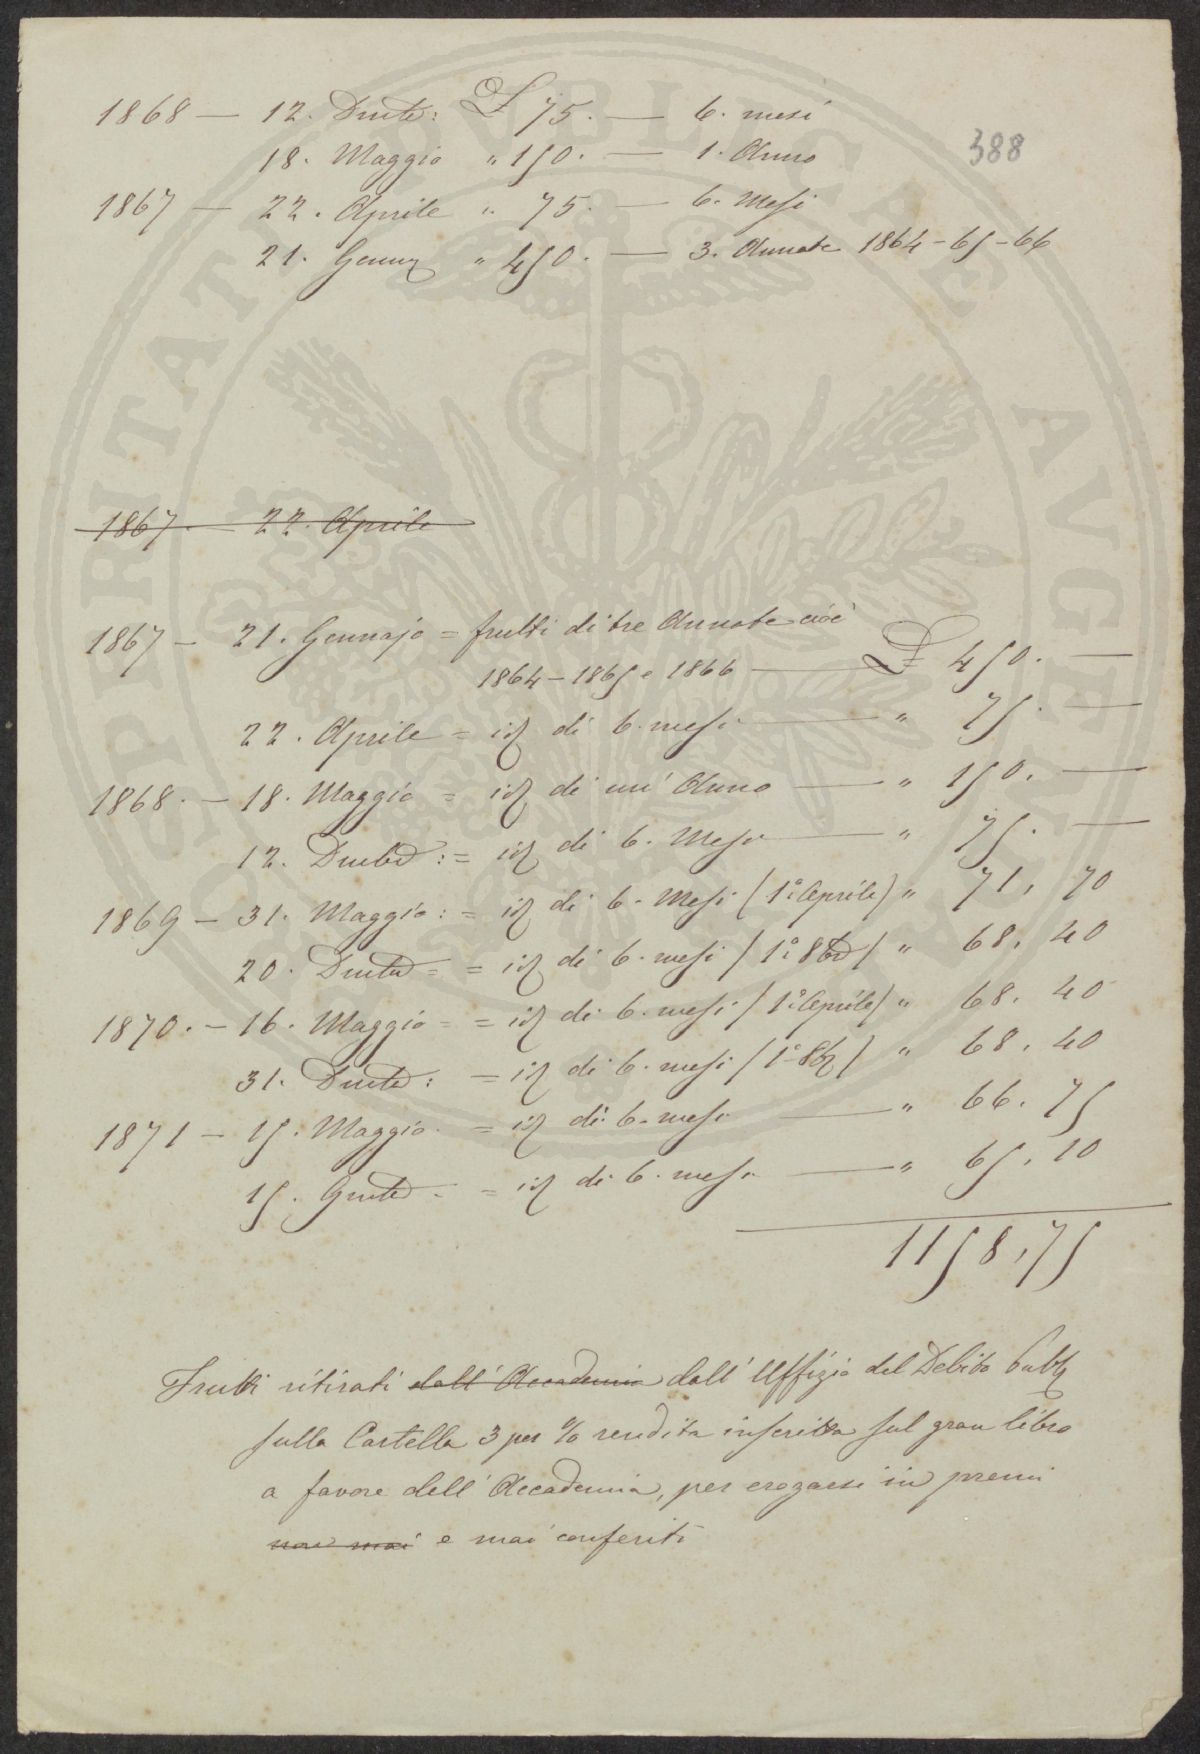 388
1868 — 12. Dmbre: £ 75. — 6. mesi
18. Maggio " 150. — 1. Anno
1867 — 22. Aprile " 75. — 6. Mesi
21. Genn " 450. — 3. Annate 1864-65-66
1867. — 22. Aprile
1867 — 21. Gennajo = frutti di tre Annate cioè
1864-1865 e 1866 — £ 450. —
22. Aprile = id di 6. mesi — " 75. —
1868. — 18. Maggio = id di un' Anno — " 150. —
12. Dmbre := id di 6. Mesi — " 75. —
1869 — 31. Maggio := id di 6. Mesi (1° Aprile) " 71, 70
20. Dmbre = = id di 6. mesi (1° 8bre) " 68, 40
1870. — 16. Maggio = = id di 6. mesi (1° Aprile) " 68, 40
31. Dmbre: = id di 6. mesi (1° 8bre) " 68, 40
1871 — 15. Maggio = id di 6. mesi — " 66. 75
15. = id di 6. mesi — " 65, 10
1158,75
Frutti ritirati dall' Accademia dall' Uffizio del Debito Pubb
sulla Cartella 3 per % rendita inscritta sul gran libro
a favore dell' Accademia, per erogarsi in premi
non mai e mai conferiti
SPQRITATI PVBLICAE AVGENDAE